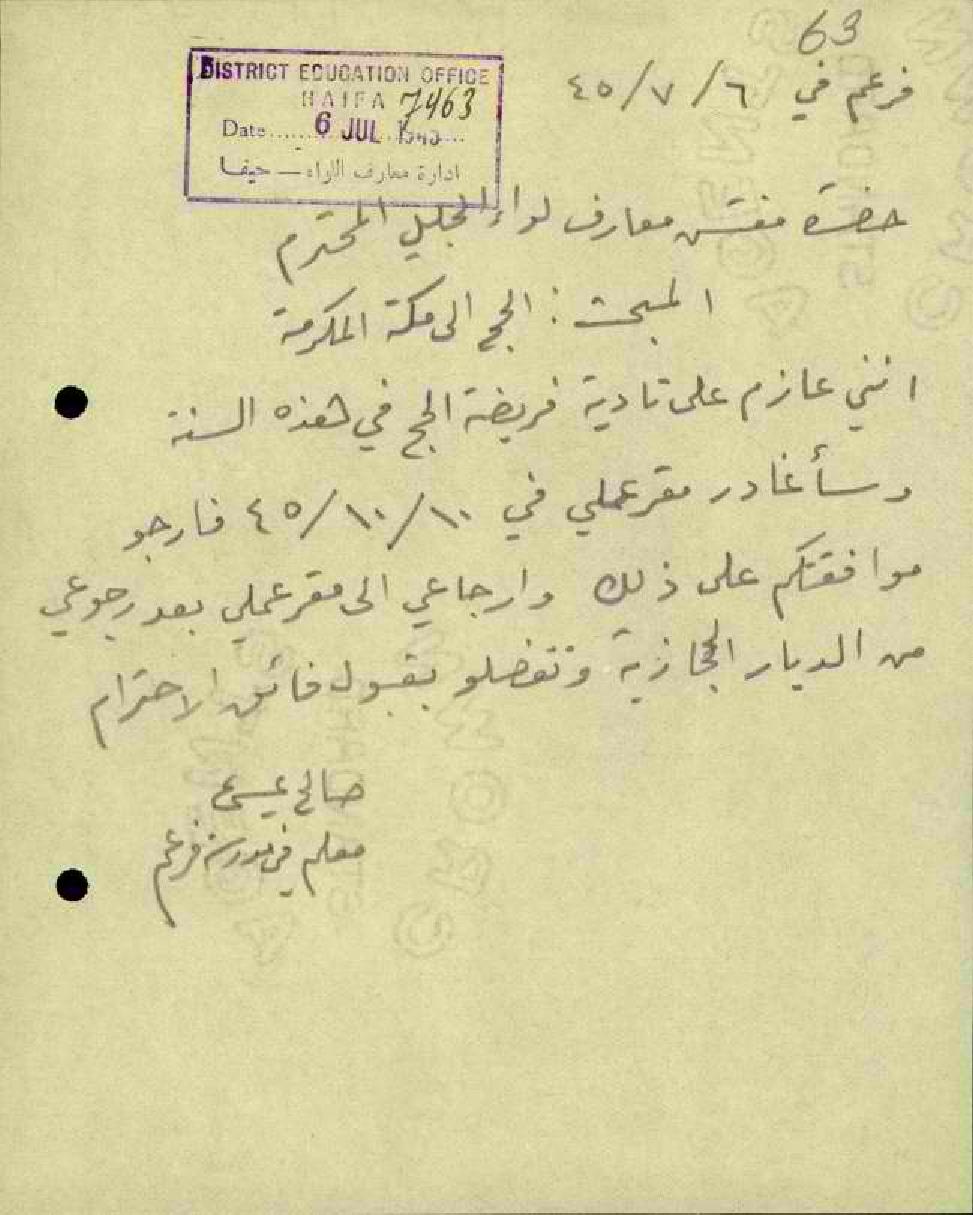 63
فرعم في ٦/٧/٤٥
DISTRICT EDUCATION OFFICE
HAIFA 7463
Date 6 JUL 1945
ادارة معارف اللواء — حيفا
حضرة مفتش معارف لواء الجليل المحترم
المبحث : الحج الى مكة المكرمة
انني عازم على تادية فريضة الحج في هذه السنة
وسأغادر مقر عملي في ١٠/١٠/٤٥ فارجو
موافقتكم على ذلك وارجاعي الى مقر عملي بعد رجوعي
من الديار الحجازية وتفضلو بقبول فائق الاحترام
صالح عيسى
معلم في مدرسة فرعم